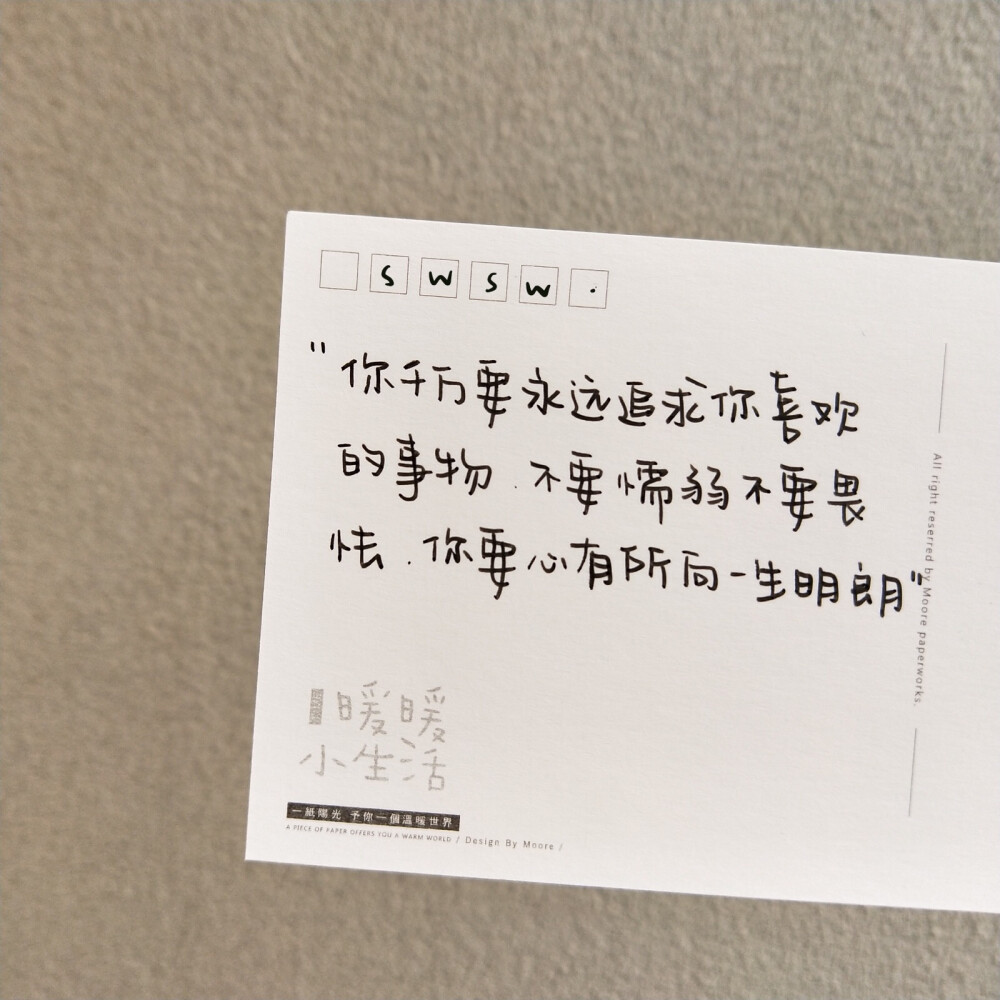 S W S W .
"你千万要永远追求你喜欢
的事物.不要懦弱不要畏
怯.你要心有所向一生明朗"
All right reserred by Moore paperworks.
暖暖
小生活
一紙陽光 予你一個溫暖世界
A PIECE OF PAPER OFFERS YOU A WARM WORLD / Design By Moore /